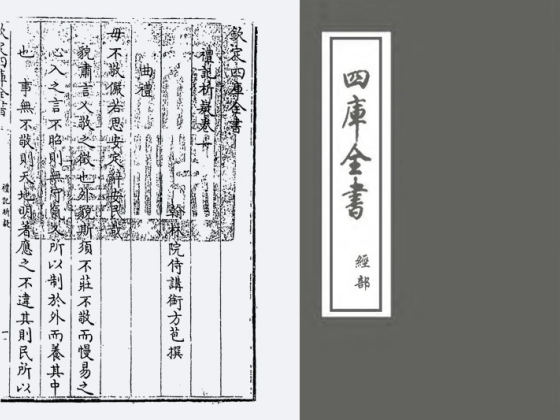 欽定四庫全書
禮記析疑卷
翰林院侍講銜方苞撰
曲禮
毋不敬儼若思安定辭安民哉
貌肅言乂敬之徵也外貌斯須不莊不敬而慢易之
心入之言不昭則無守氣又所以制於外而養其中
也 事無不敬則天地明著應之不違其則民所以
欽定四庫全書
禮記析疑
一
四庫全書
經部